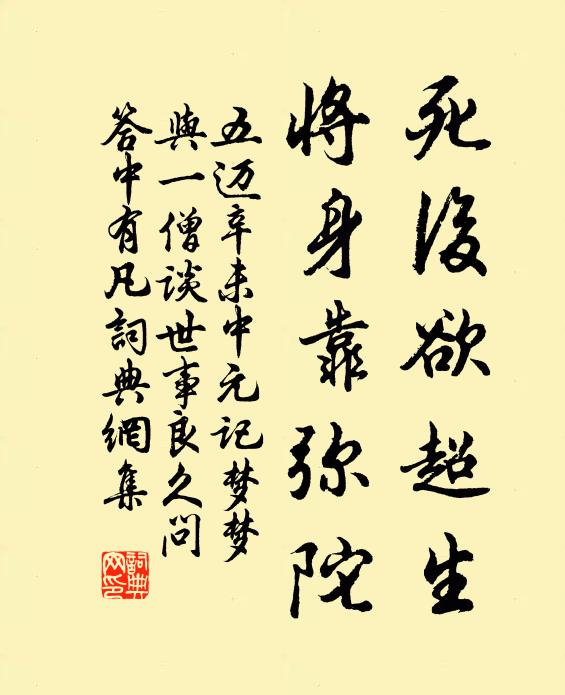 死後欲超生
將身靠弥陀
五迈辛未中元记梦梦
與一僧谈世事良久问
答中有凡詞典網集
詞典
网印